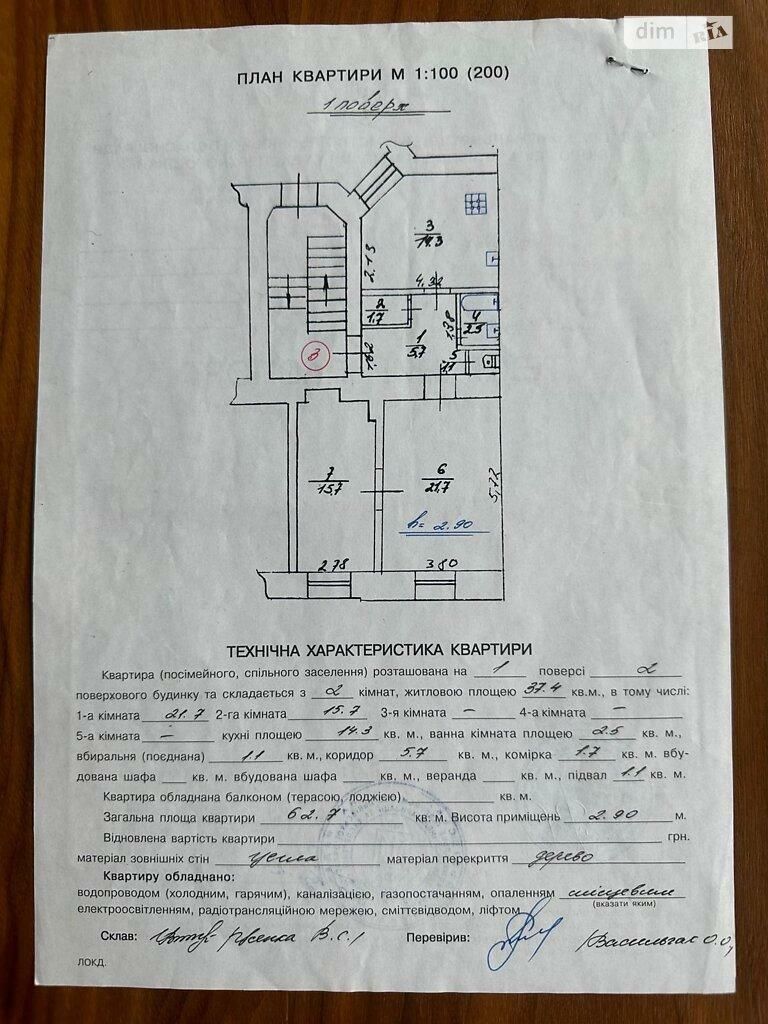 dim RIA
ПЛАН КВАРТИРИ М 1:100 (200)
1 поверх
3
14.3
2.13
4.32
2
1.7
4
2.5
1.38
1
5.7
5
1.1
3
7
15.7
6
21.7
5,72
h= 2.90
2.78
3.80
ТЕХНІЧНА ХАРАКТЕРИСТИКА КВАРТИРИ
Квартира (посімейного, спільного заселення) розташована на 1 поверсі 2
поверхового будинку та складається з 2 кімнат, житловою площею 37.4 кв.м., в тому числі:
1-а кімната 21.7 2-га кімната 15.7 3-я кімната – 4-а кімната –
5-а кімната – кухні площею 14.3 кв. м., ванна кімната площею 2.5 кв. м.,
вбиральня (поєднана) 1.1 кв. м., коридор 5.7 кв. м., комірка 1.7 кв. м. вбу-
дована шафа кв. м. вбудована шафа кв. м., веранда кв. м., підвал 1.1 кв. м.
Квартира обладнана балконом (терасою, лоджією) кв. м.
Загальна площа квартири 62.7 кв. м. Висота приміщень 2.90 м.
Відновлена вартість квартири грн.
матеріал зовнішніх стін цегла матеріал перекриття дерево
Квартиру обладнано:
водопроводом (холодним, гарячим), каналізацією, газопостачанням, опаленням місцевим
(вказати яким)
електроосвітленням, радіотрансляційною мережею, сміттєвідводом, ліфтом
Склав: В.С. Перевірив: О.О,
ЛОКД.